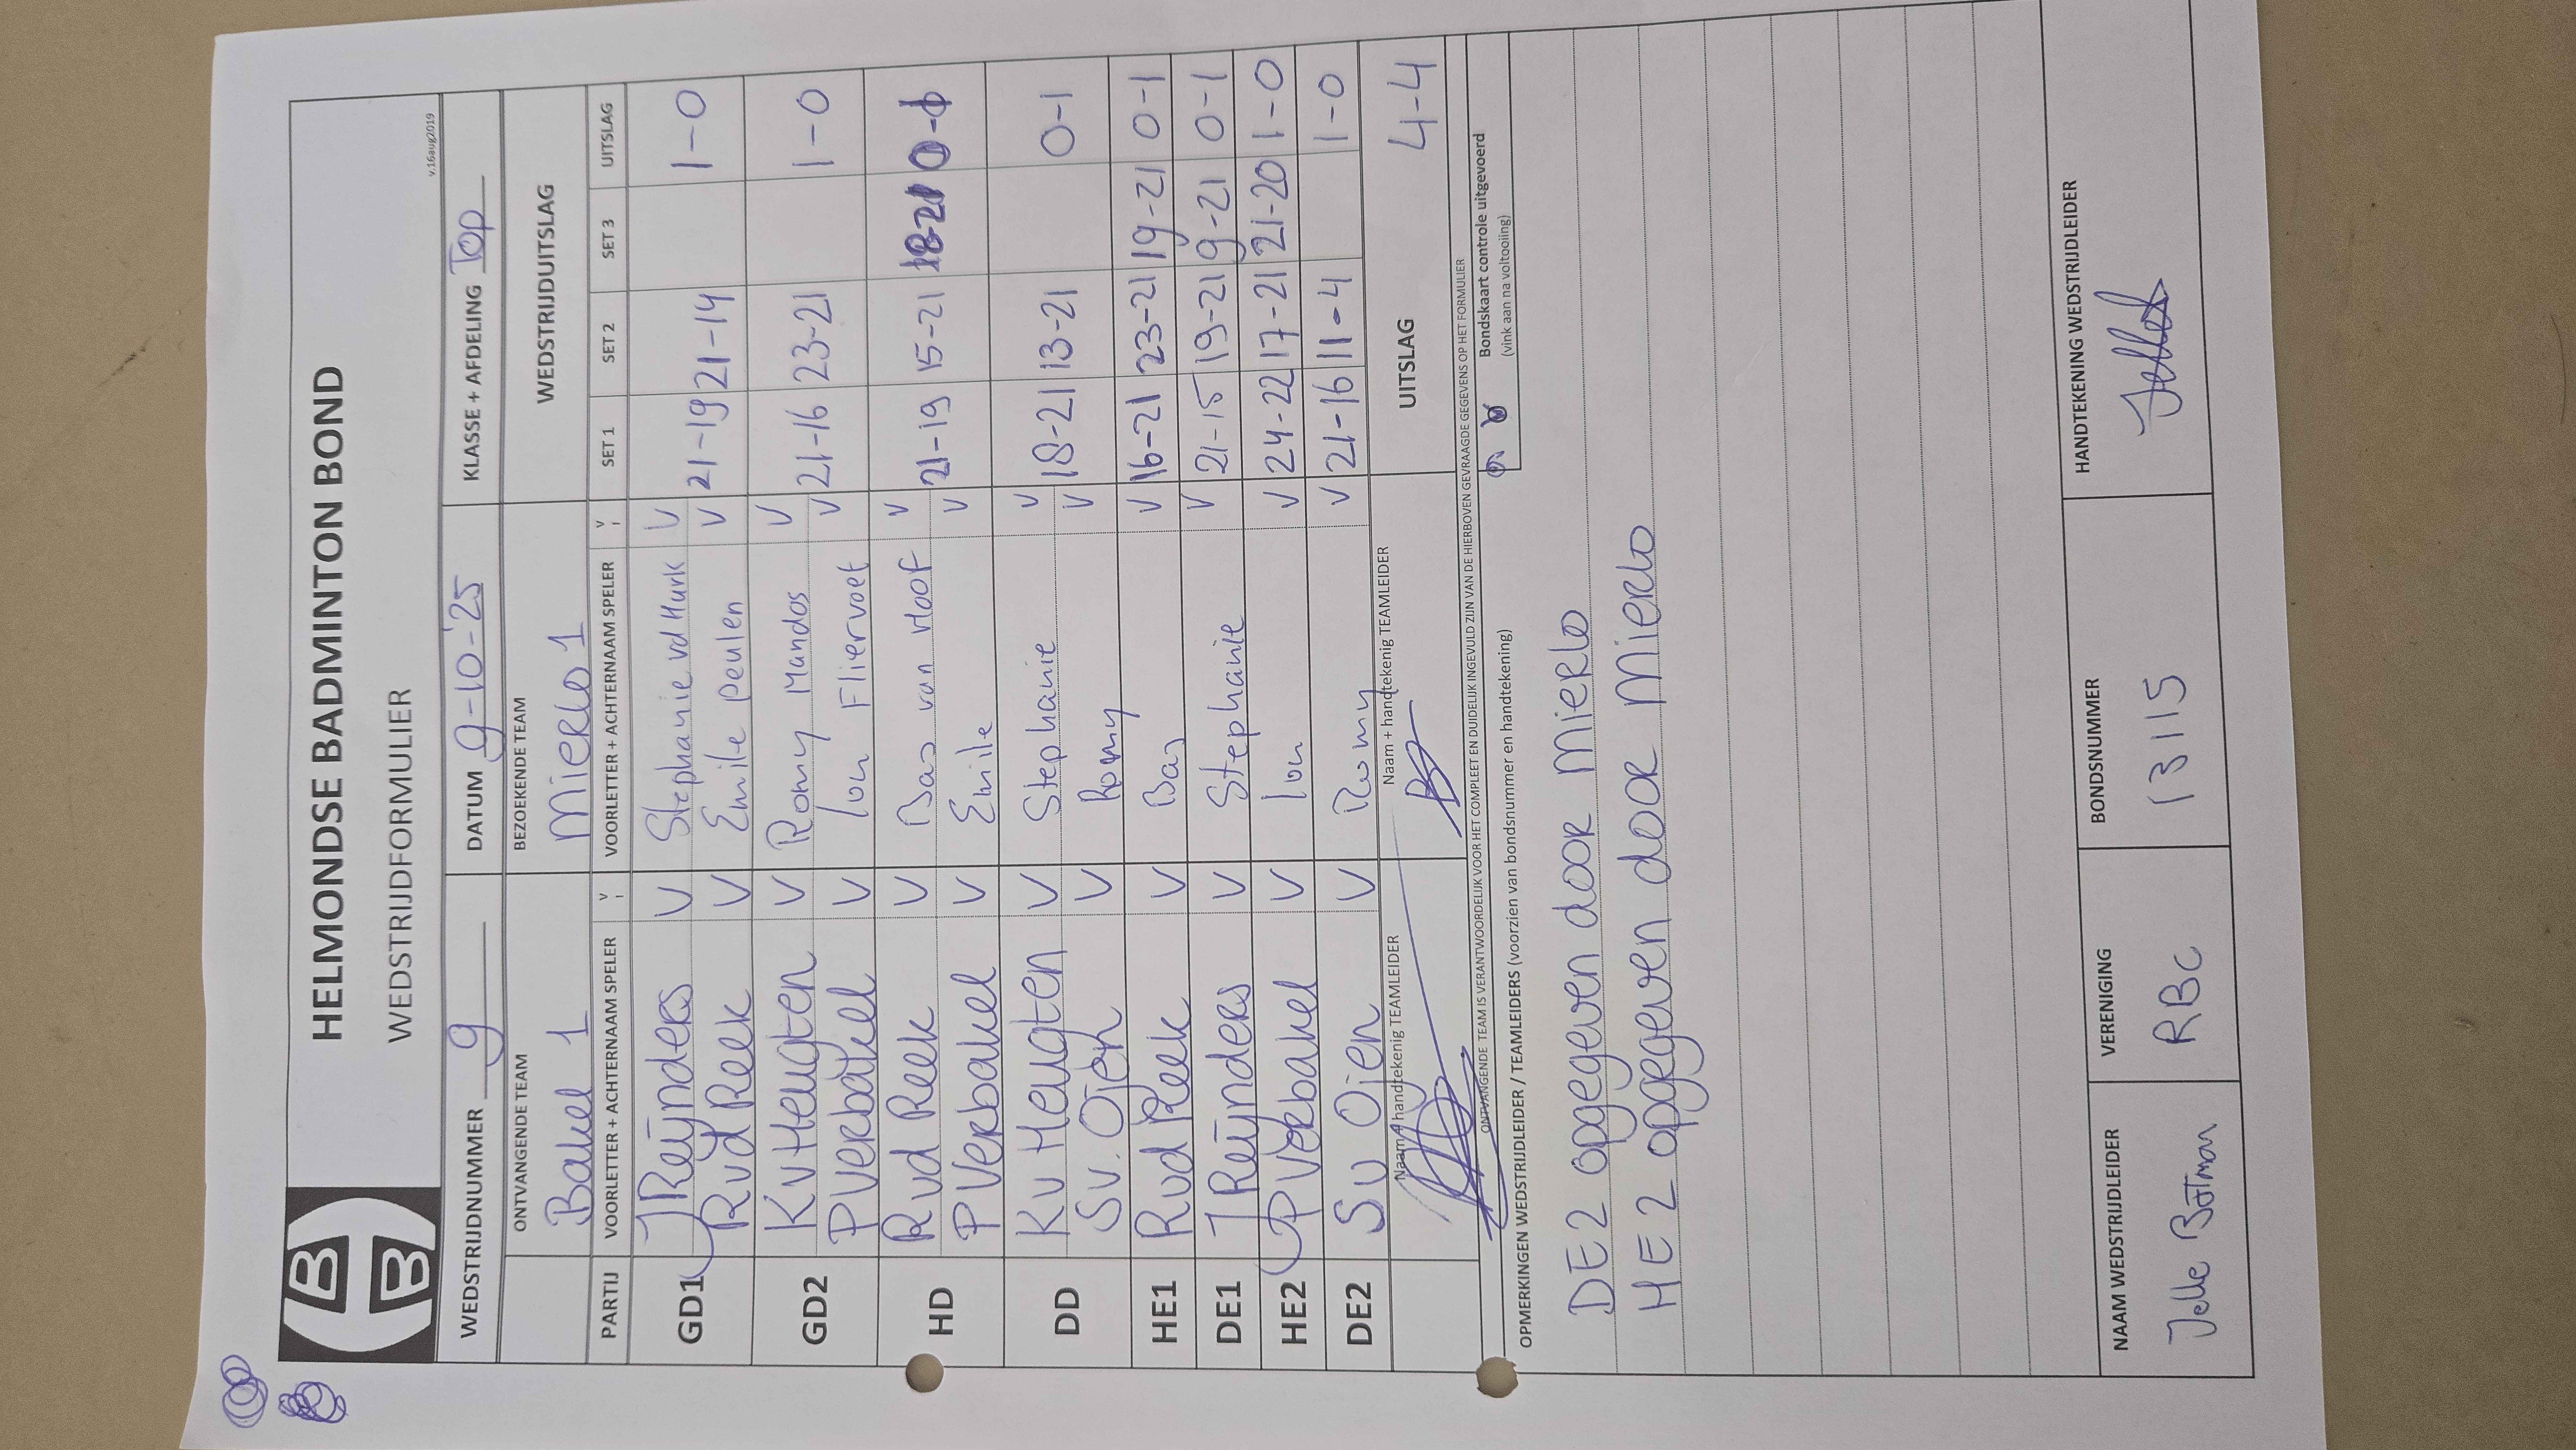 HELMONDSE BADMINTON BOND
WEDSTRIJDFORMULIER
v.16aug2019
WEDSTRIJDNUMMER 9 DATUM 9-10-'25 KLASSE + AFDELING Top
ONTVANGENDE TEAM BEZOEKENDE TEAM WEDSTRIJDUITSLAG
Bakel 1 Mierlo 1
PARTIJ VOORLETTER + ACHTERNAAM SPELER V VOORLETTER + ACHTERNAAM SPELER V SET 1 SET 2 SET 3 UITSLAG
GD1 J Reijnders V Stephanie vd Hurk V 21-19 21-14 1-0
Rvd Reek V Emile Peulen V
GD2 Kv Heugten V Romy Mandos V 21-16 23-21 1-0
P Verbakel V Ton Fliervoet V
HD Rvd Reek V Bas van Hoof V 21-19 15-21 18-21 0-1
P Verbakel V Emile V
DD Kv Heugten V Stephanie V 18-21 13-21 0-1
Sv. Oijen V Romy V
HE1 Rvd Reek V Bas V 16-21 23-21 19-21 0-1
DE1 J Reijnders V Stephanie V 21-15 19-21 9-21 0-1
HE2 P Verbakel V Ton V 24-22 17-21 21-20 1-0
DE2 Sv Oijen V Romy V 21-16 11-4 1-0
Naam + handtekenig TEAMLEIDER Naam + handtekenig TEAMLEIDER UITSLAG 4-4
ONTVANGENDE TEAM IS VERANTWOORDELIJK VOOR HET COMPLEET EN DUIDELIJK INGEVULD ZIJN VAN DE HIERBOVEN GEVRAAGDE GEGEVENS OP HET FORMULIER
Bondskaart controle uitgevoerd
(vink aan na voltooiing)
OPMERKINGEN WEDSTRIJDLEIDER / TEAMLEIDERS (voorzien van bondsnummer en handtekening)
DE2 opgegeven door Mierlo
HE 2 opgegeven door Mierlo
NAAM WEDSTRIJDLEIDER VERENIGING BONDSNUMMER HANDTEKENING WEDSTRIJDLEIDER
Jelle Botman RBC 13115